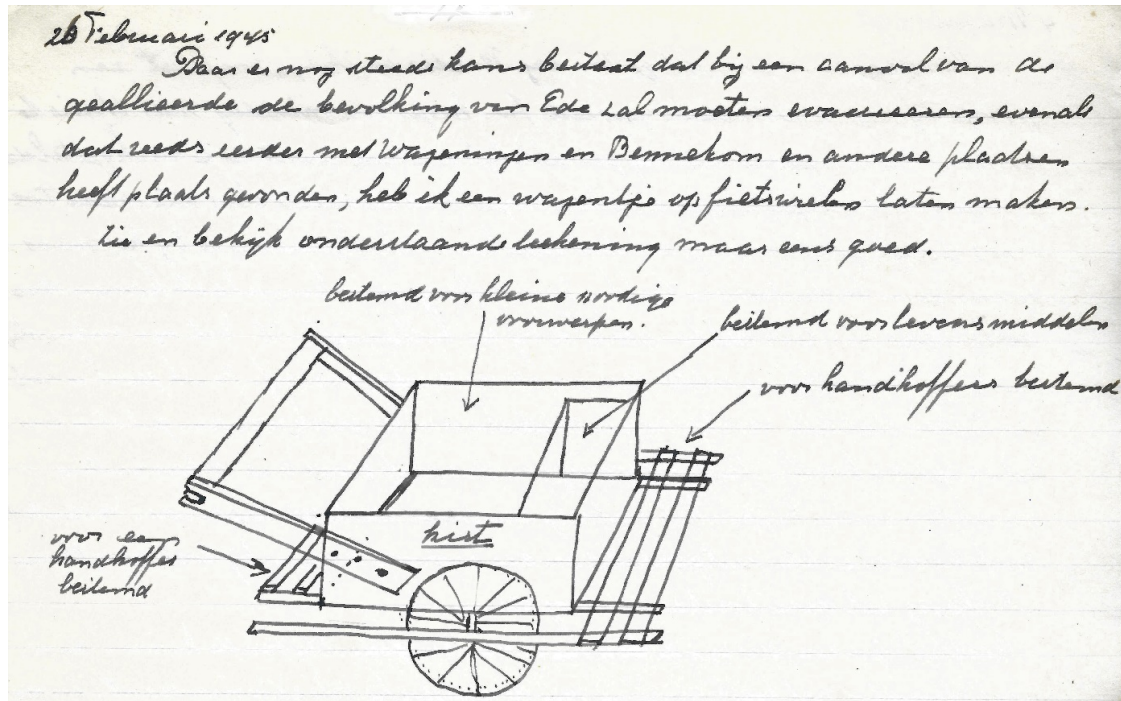 26 Februari 1945
Daar er nog steeds kans bestaat dat bij een aanval van de
geallieerde de bevolking van Ede zal moeten evacueeren, evenals
dat reeds eerder met Wageningen en Bennekom en andere plaatsen
heeft plaats gevonden, heb ik een wagentje op fietswielen laten maken.
Zie en bekijk onderstaande teekening maar eens goed.
bestemd voor kleine nodige
voorwerpen.
bestemd voor levensmiddelen
voor handkoffers bestemd
kist
voor een
handkoffer
bestemd